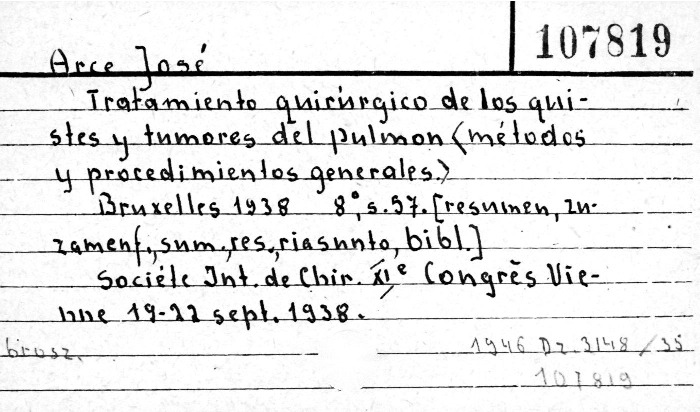 107819
Arce José
Tratamiento quirúrgico de los qui-
stes y tumores del pulmon (métodos
y procedimientos generales.)
Bruxelles 1938 8°, s. 57. [resumen, zu-
zamenf., sum., res., riasunto, bibl.]
Sociéte Int. de Chir. XIe Congrès Vie-
nne 19-22 sept. 1938.
brosz.
1946 Dz. 3148/35
107819